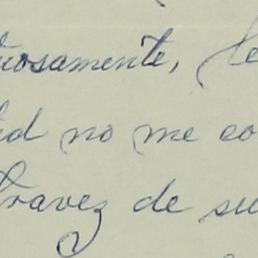 uosamente, le
ed no me co
travez de su